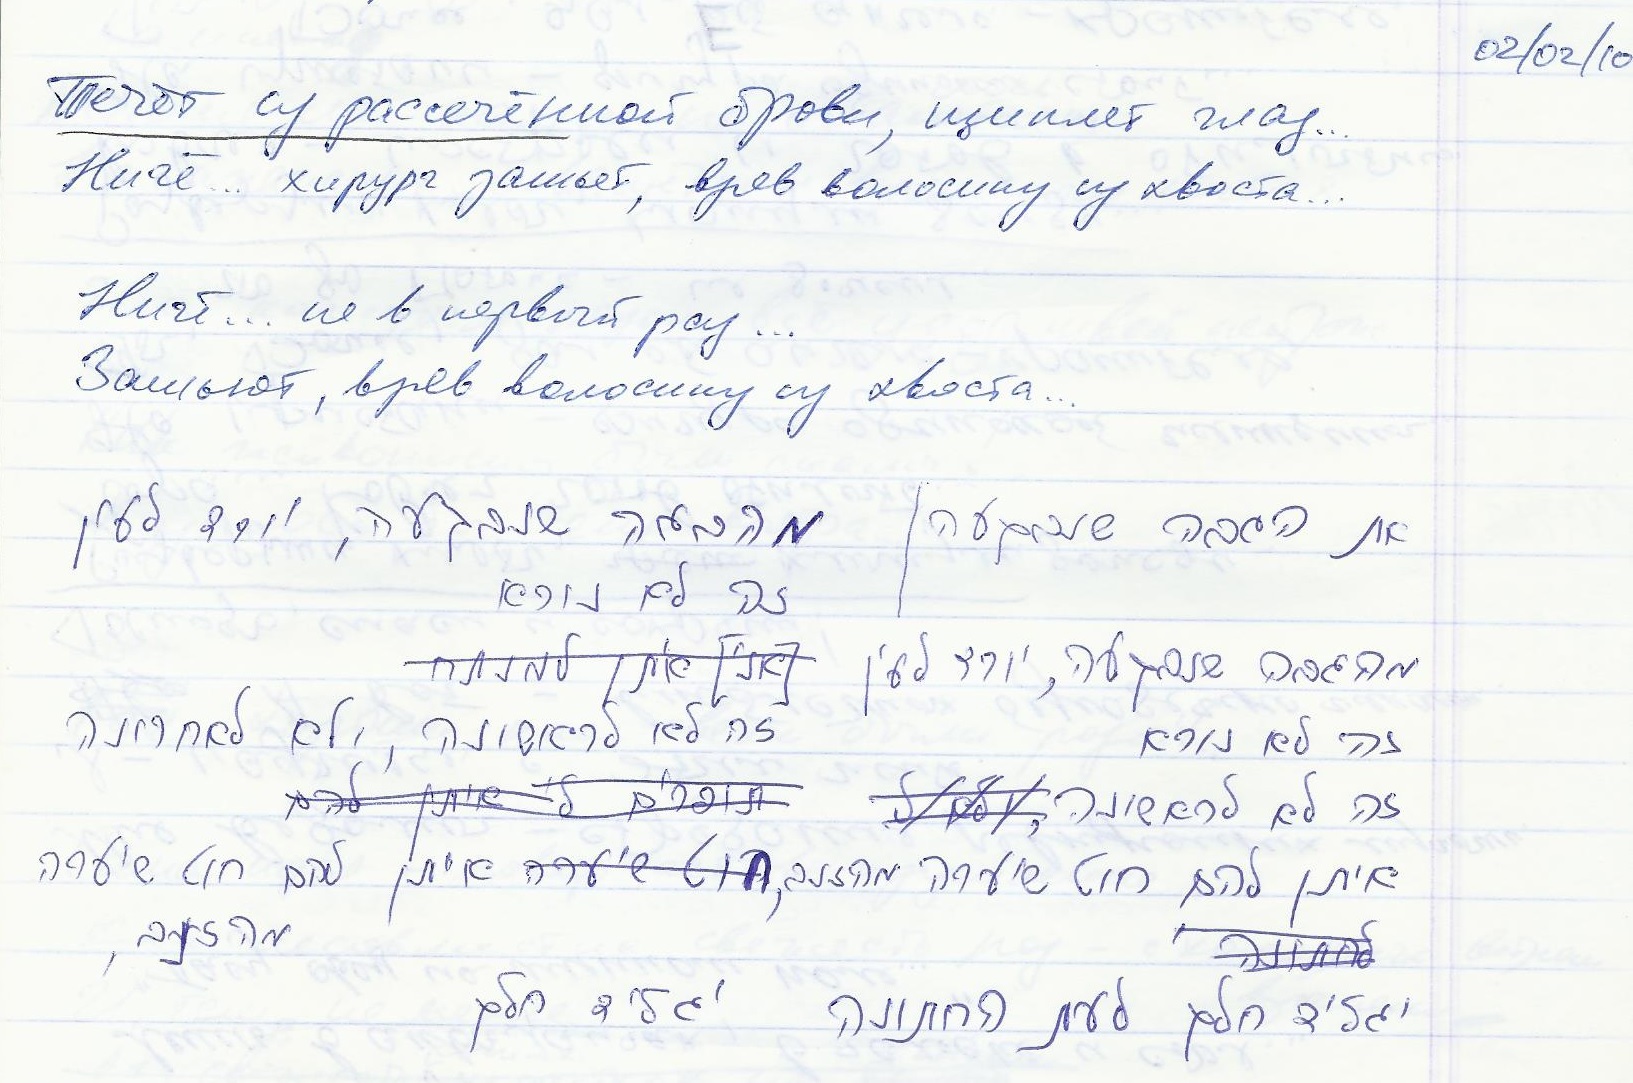 02/02/10
Течёт из рассечённой брови, щиплет глаз...
Ничё... хирург зашьёт, вдев волосину из хвоста...
Ничё... не в первый раз...
Зашьют, вдев волосину из хвоста...
את הגבה שנבקעה מהגבה שנבקעה, יורד לעין
זה לא נורא
מהגבה שנבקעה, יורד לעין [אני] איתן למנתח
זה לא נורא זה לא לראשונה, ולא לאחרונה
זה לא לראשונה, ולא ל תופרים לי איתן להם
איתן להם חוט שיערה מהזנב, חוט שיערה איתן להם חוט שיערה
לחתונה מהזנב,
יגליד חלק לעת החתונה יגליד חלק